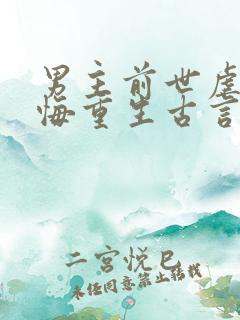 男主前世虐
悔重生古言
二宫悦巳
未经同意禁止转载